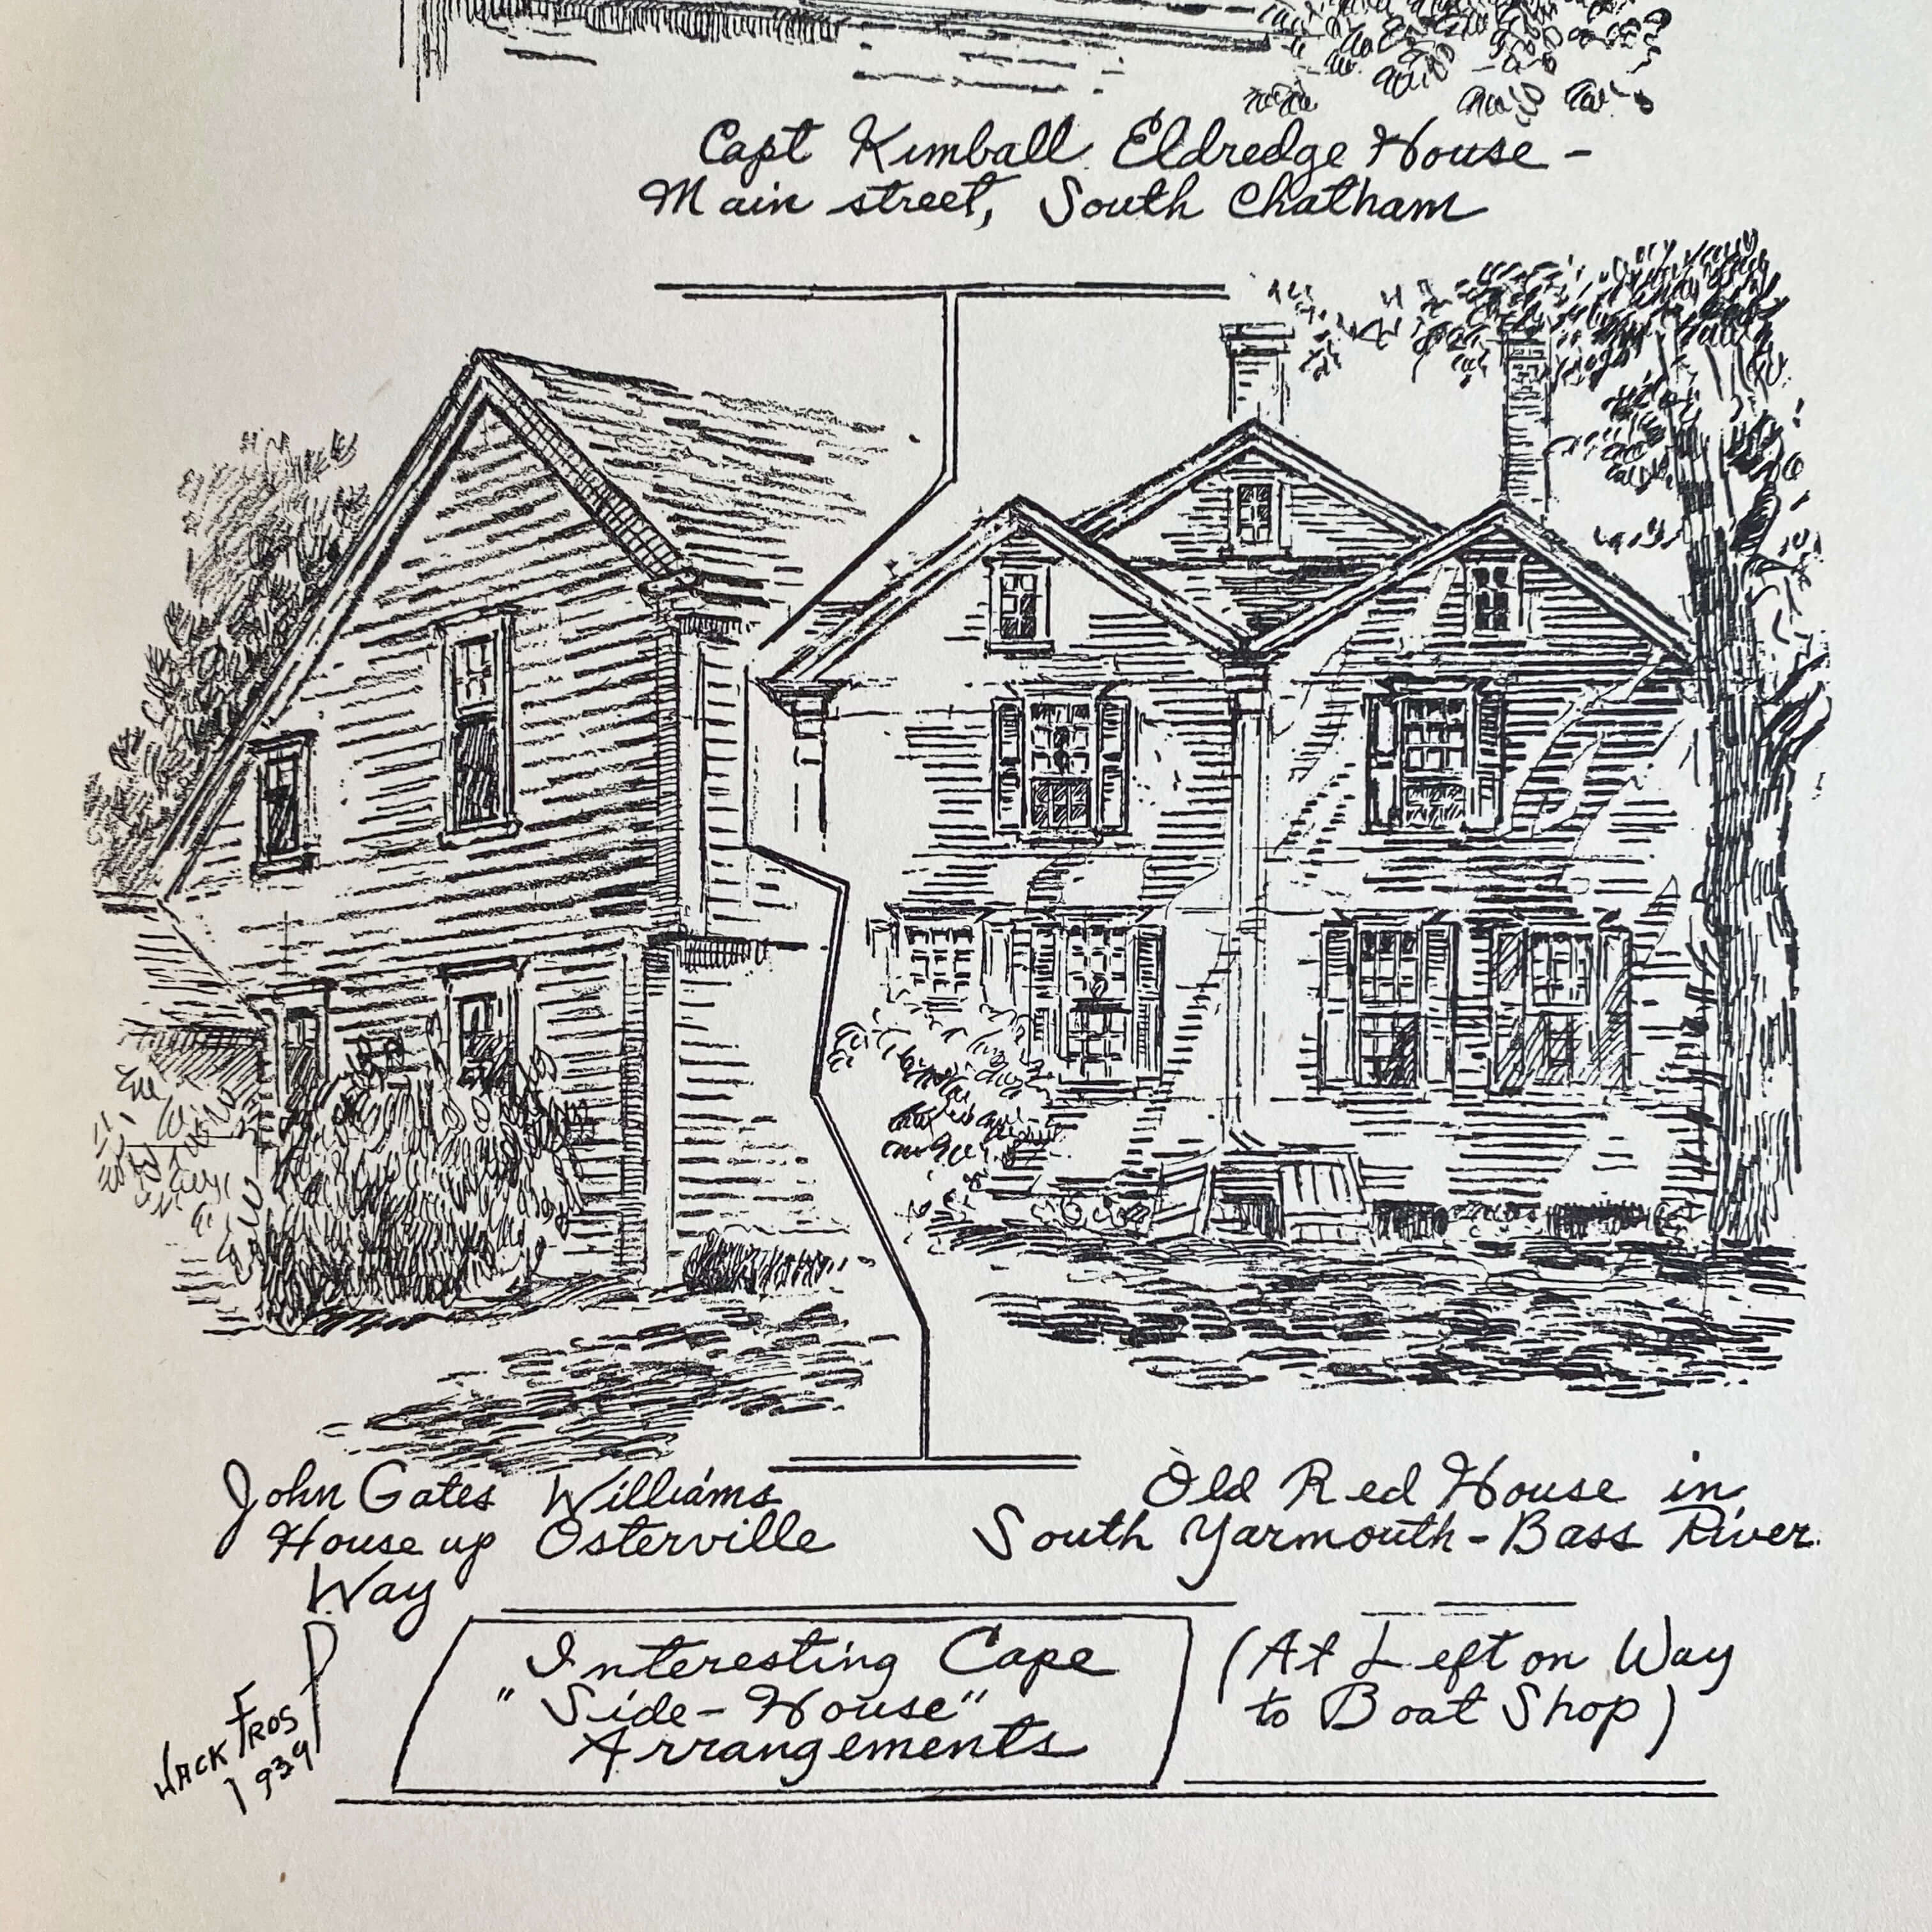 Capt Kimball Eldredge House -
Main street, South Chatham
John Gates Williams
House up Osterville
Way
Old Red House in
South Yarmouth - Bass River
Interesting Cape
"Side - House"
Arrangements
(At Left on Way
to Boat Shop)
JACK FROST
1939